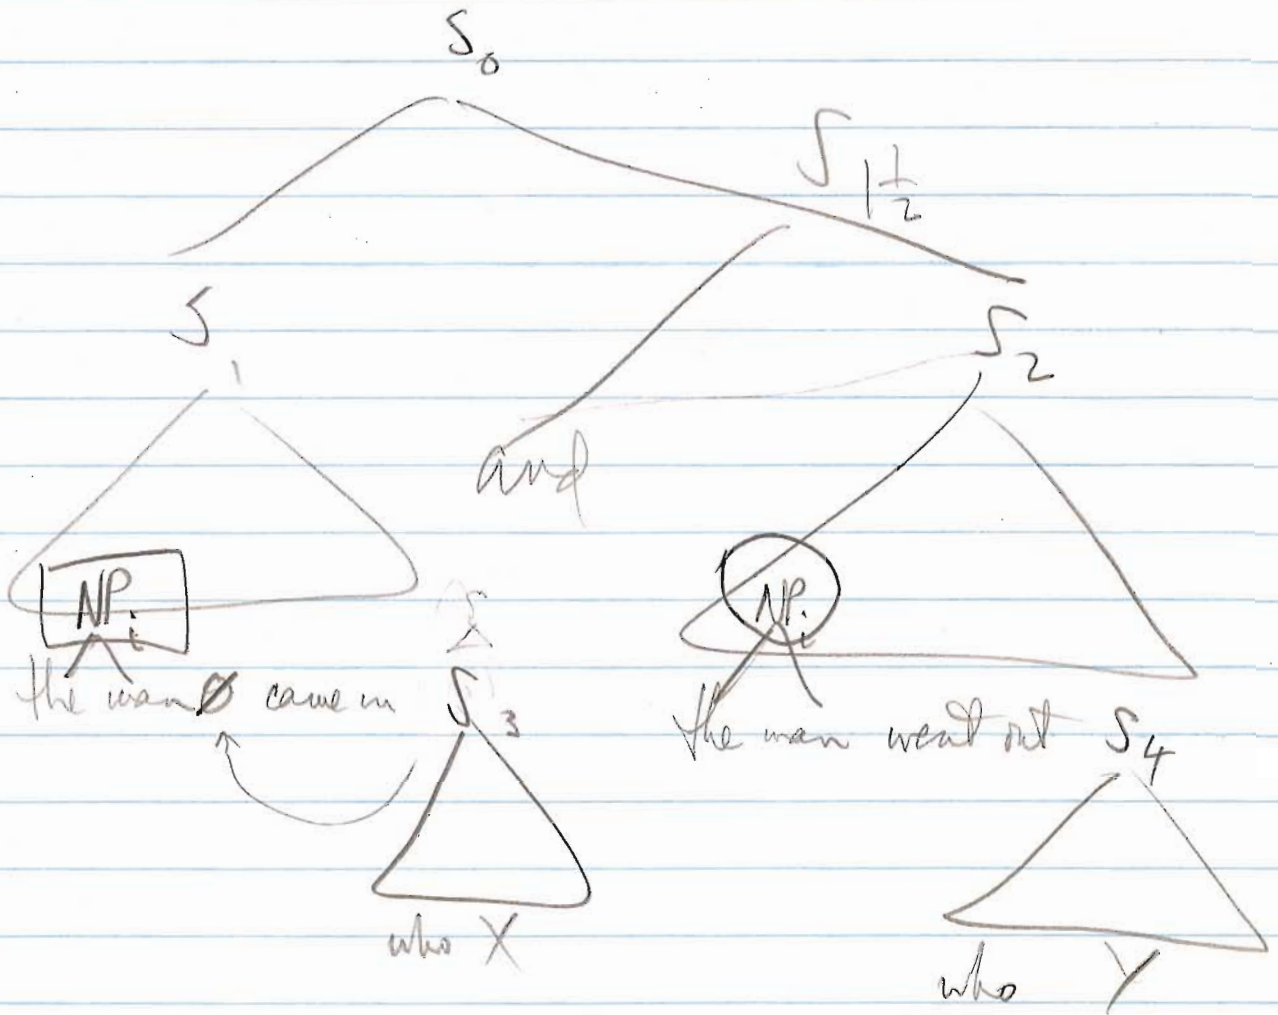 S₀
S₁½
S₁
S₂
and
NPᵢ
NPᵢ
the man Ø came in
S₃
the man went out S₄
who X
who Y